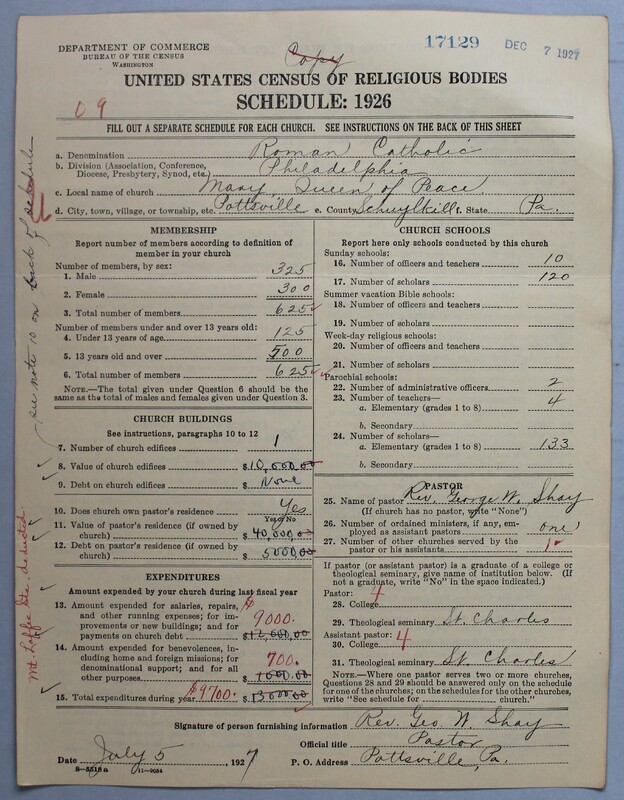 DEPARTMENT OF COMMERCE
BUREAU OF THE CENSUS
WASHINGTON
Copy
17129 DEC 7 1927
UNITED STATES CENSUS OF RELIGIOUS BODIES
SCHEDULE: 1926
09
FILL OUT A SEPARATE SCHEDULE FOR EACH CHURCH. SEE INSTRUCTIONS ON THE BACK OF THIS SHEET
a. Denomination Roman Catholic
b. Division (Association, Conference, Diocese, Presbytery, Synod, etc.) Philadelphia
c. Local name of church Mary, Queen of Peace
d. City, town, village, or township, etc. Pottsville e. County Schuylkill f. State Pa.
see note 10 on back of schedule
MEMBERSHIP
Report number of members according to definition of
member in your church
Number of members, by sex:
1. Male 325
2. Female 300
3. Total number of members 625
Number of members under and over 13 years old:
4. Under 13 years of age 125
5. 13 years old and over 500
6. Total number of members 625
NOTE.—The total given under Question 6 should be
same as the total of males and females given under Question 3.
CHURCH BUILDINGS
See instructions, paragraphs 10 to 12
7. Number of church edifices 1
8. Value of church edifices $10,000.00
9. Debt on church edifices $ None
10. Does church own pastor's residence Yes
Yes or No
11. Value of pastor's residence (if owned by
church) $ 40,000.00
12. Debt on pastor's residence (if owned by
church) $ 5000.00
EXPENDITURES
Amount expended by your church during last fiscal year
13. Amount expended for salaries, repairs,
and other running expenses; for im-
provements or new buildings; and for
payments on church debt $12,000.00
$9000.
14. Amount expended for benevolences, in-
cluding home and foreign missions; for
denominational support; and for all
other purposes $1000.00
700.
15. Total expenditures during year $9700. $13000.00
CHURCH SCHOOLS
Report here only schools conducted by this church
Sunday schools:
16. Number of officers and teachers 10
17. Number of scholars 120
Summer vacation Bible schools:
18. Number of officers and teachers
19. Number of scholars
Week-day religious schools:
20. Number of officers and teachers
21. Number of scholars
Parochial schools:
22. Number of administrative officers 2
23. Number of teachers—
a. Elementary (grades 1 to 8) 4
b. Secondary
24. Number of scholars—
a. Elementary (grades 1 to 8) 133
b. Secondary
PASTOR
25. Name of pastor Rev. George W. Shay
(If church has no pastor, write "None")
26. Number of ordained ministers, if any, em-
ployed as assistant pastors one
27. Number of other churches served by the
pastor or his assistants 1
If pastor (or assistant pastor) is a graduate of a college or
theological seminary, give name of institution below. (If
not a graduate, write "No" in the space indicated.)
Pastor: 4
28. College
29. Theological seminary St. Charles
Assistant pastor: 4
30. College
31. Theological seminary St. Charles
NOTE.—Where one pastor serves two or more churches,
Questions 28 and 29 should be answered only on the schedule
for one of the churches; on the schedules for the other churches,
write "See schedule for church."
Signature of person furnishing information Rev. Geo. W. Shay
Official title Pastor
Date July 5, 1927 P. O. Address Pottsville, Pa.
8-5518a 11-9054